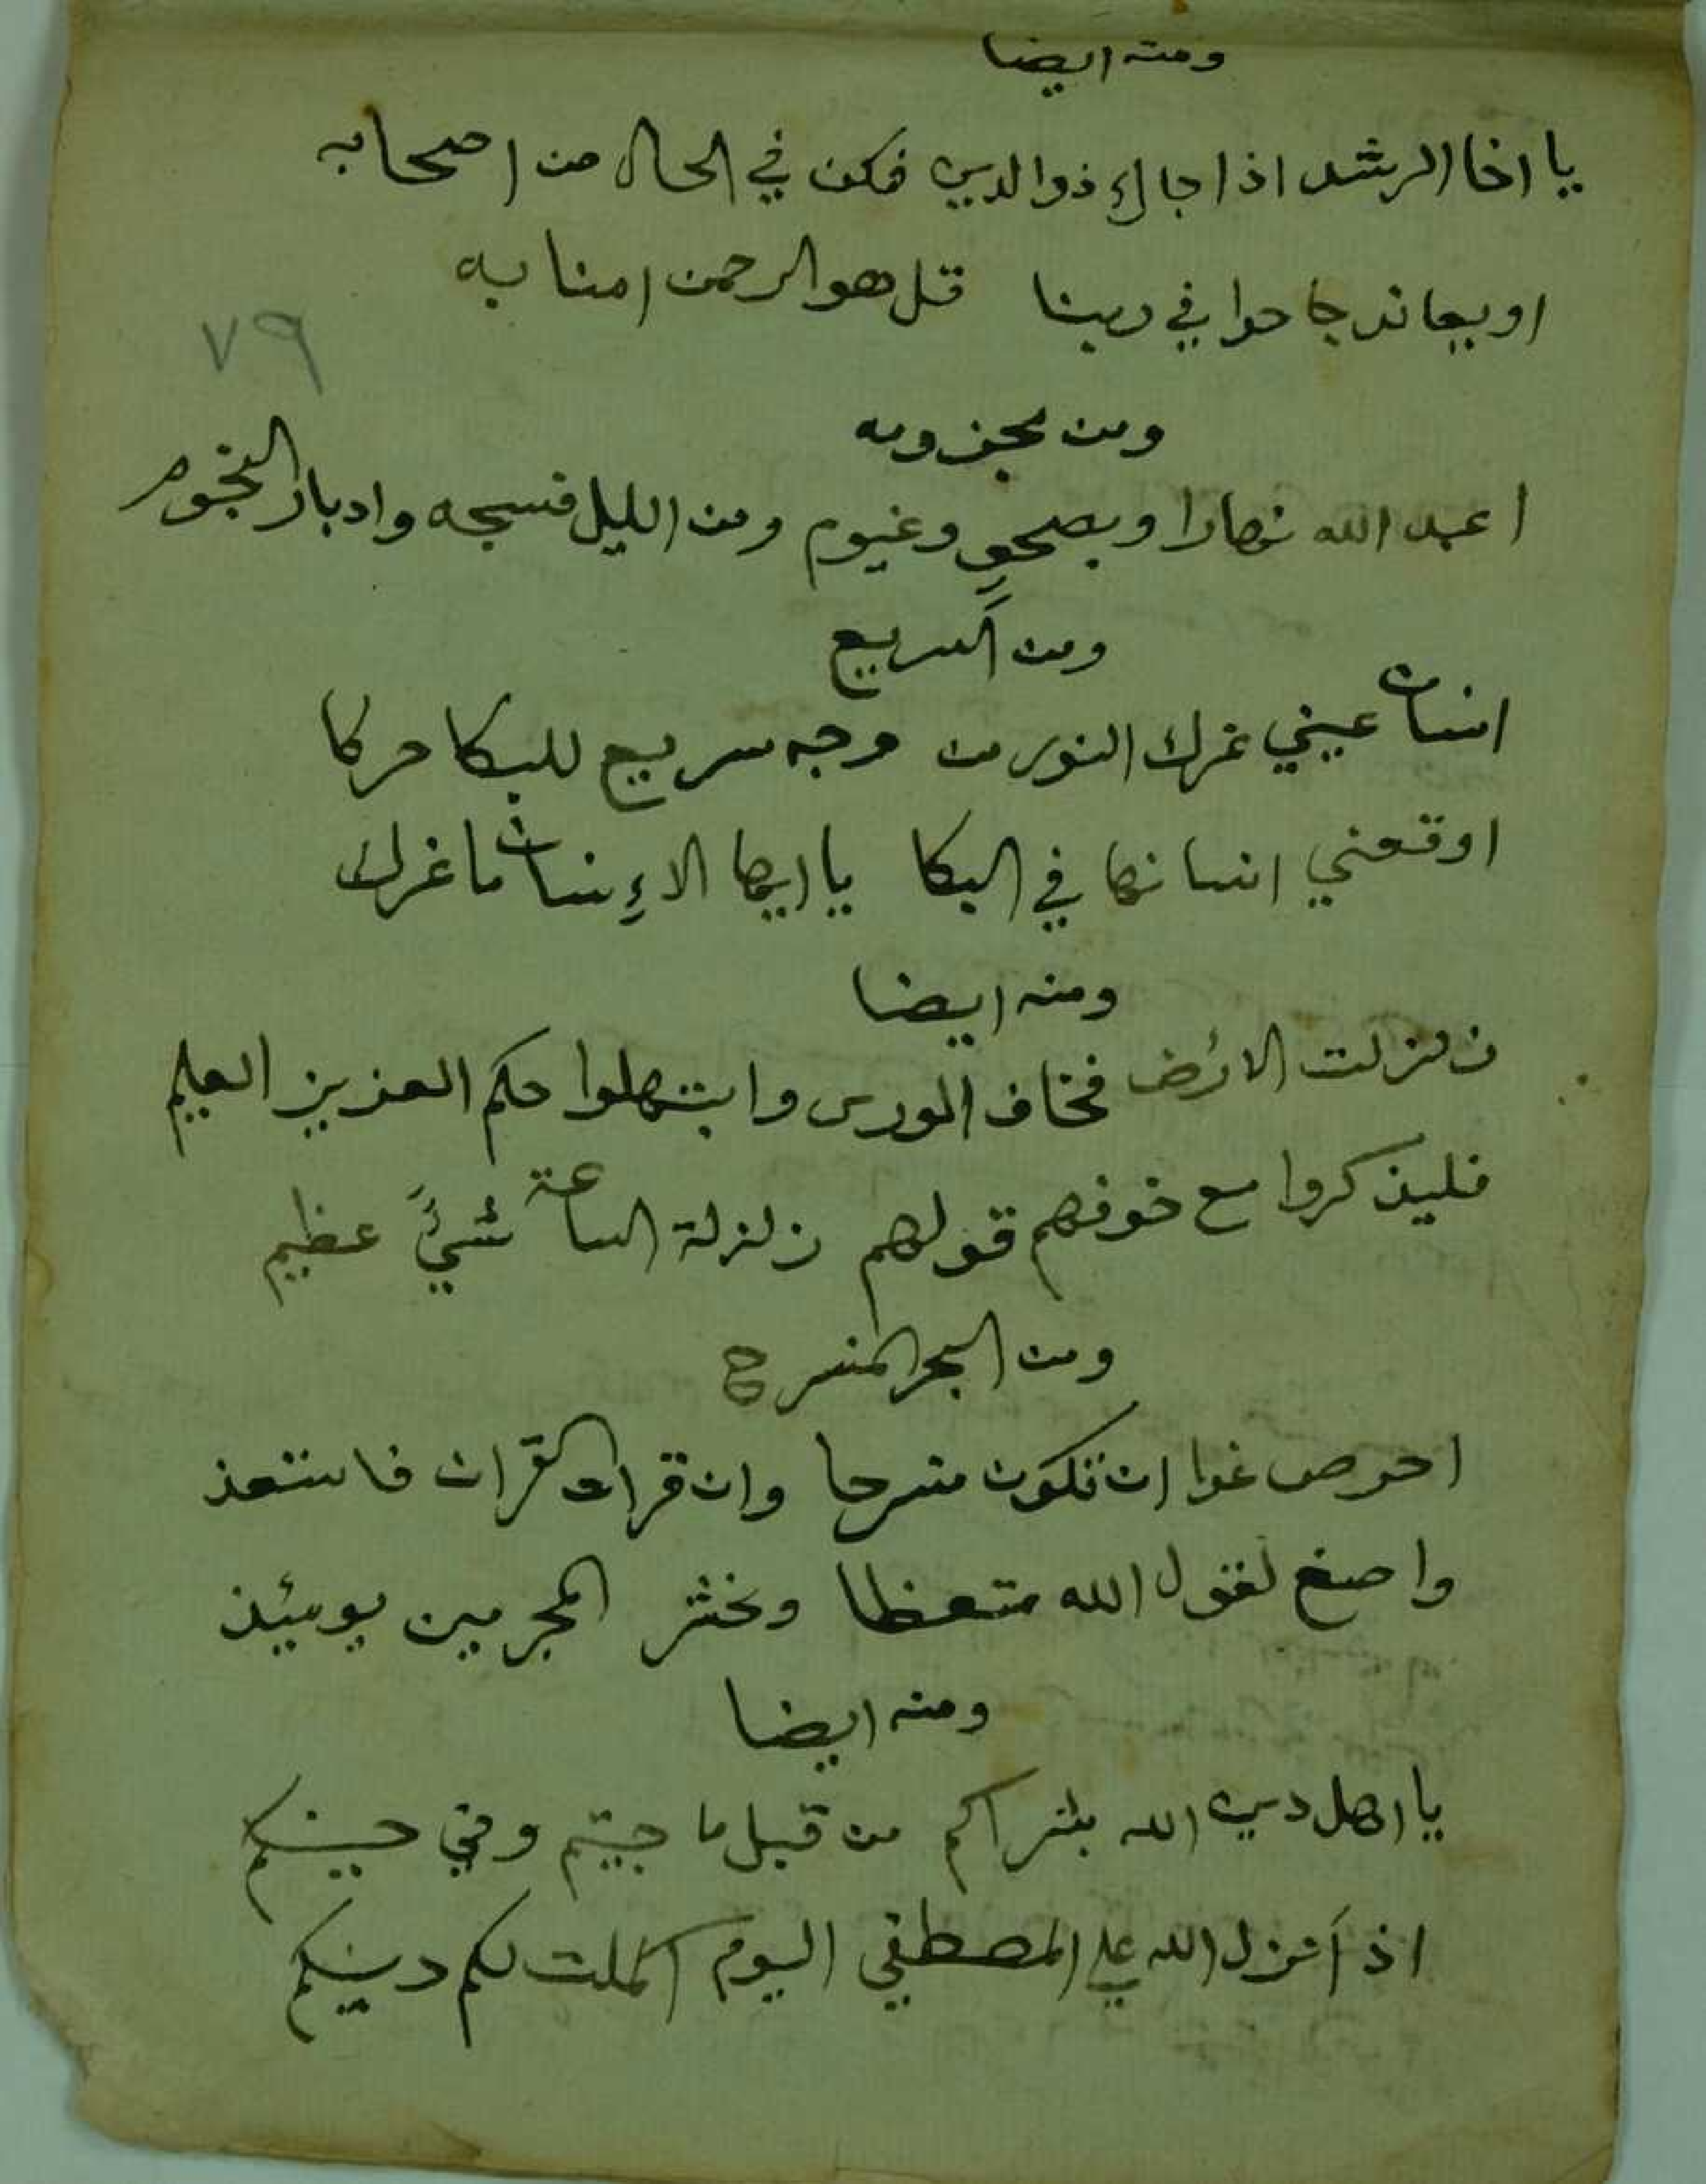 ومنه ايضا
يا اخا الرشد اذا جاك ذو الدين فكن في الحال من اصحابه
او يعاند جاحدا في ربنا قل هو الرحمن امنا به
٧٩
ومن مجزومه
اعبد الله نهارا وبصحوٍ وغيوم ومن الليل فسبحه وادبار النجوم
ومن السريع
انسان عيني غرك النور من وجه سريع للبكا حركا
اوقعني انسانها في البكا يا ايها الاٍنسان ما غرك
ومنه ايضا
زلزلت الارض فخاف الورى وابتهلوا حكم العزيز العليم
فليذكروا مع خوفهم قولهم زلزلة الساعة شيءً عظيم
ومن البحر المنسرح
احرص غدا ان تكون منسرحا وان قرات القران فاستعذ
واصغ لقول الله متعظا ونحشر المجرمين يوميئذ
ومنه ايضا
يا اهل دين الله بشراكم من قبل ما جيتم وفي حينكم
اذ اَنزل الله على المصطفي اليوم اكملت لكم دينكم